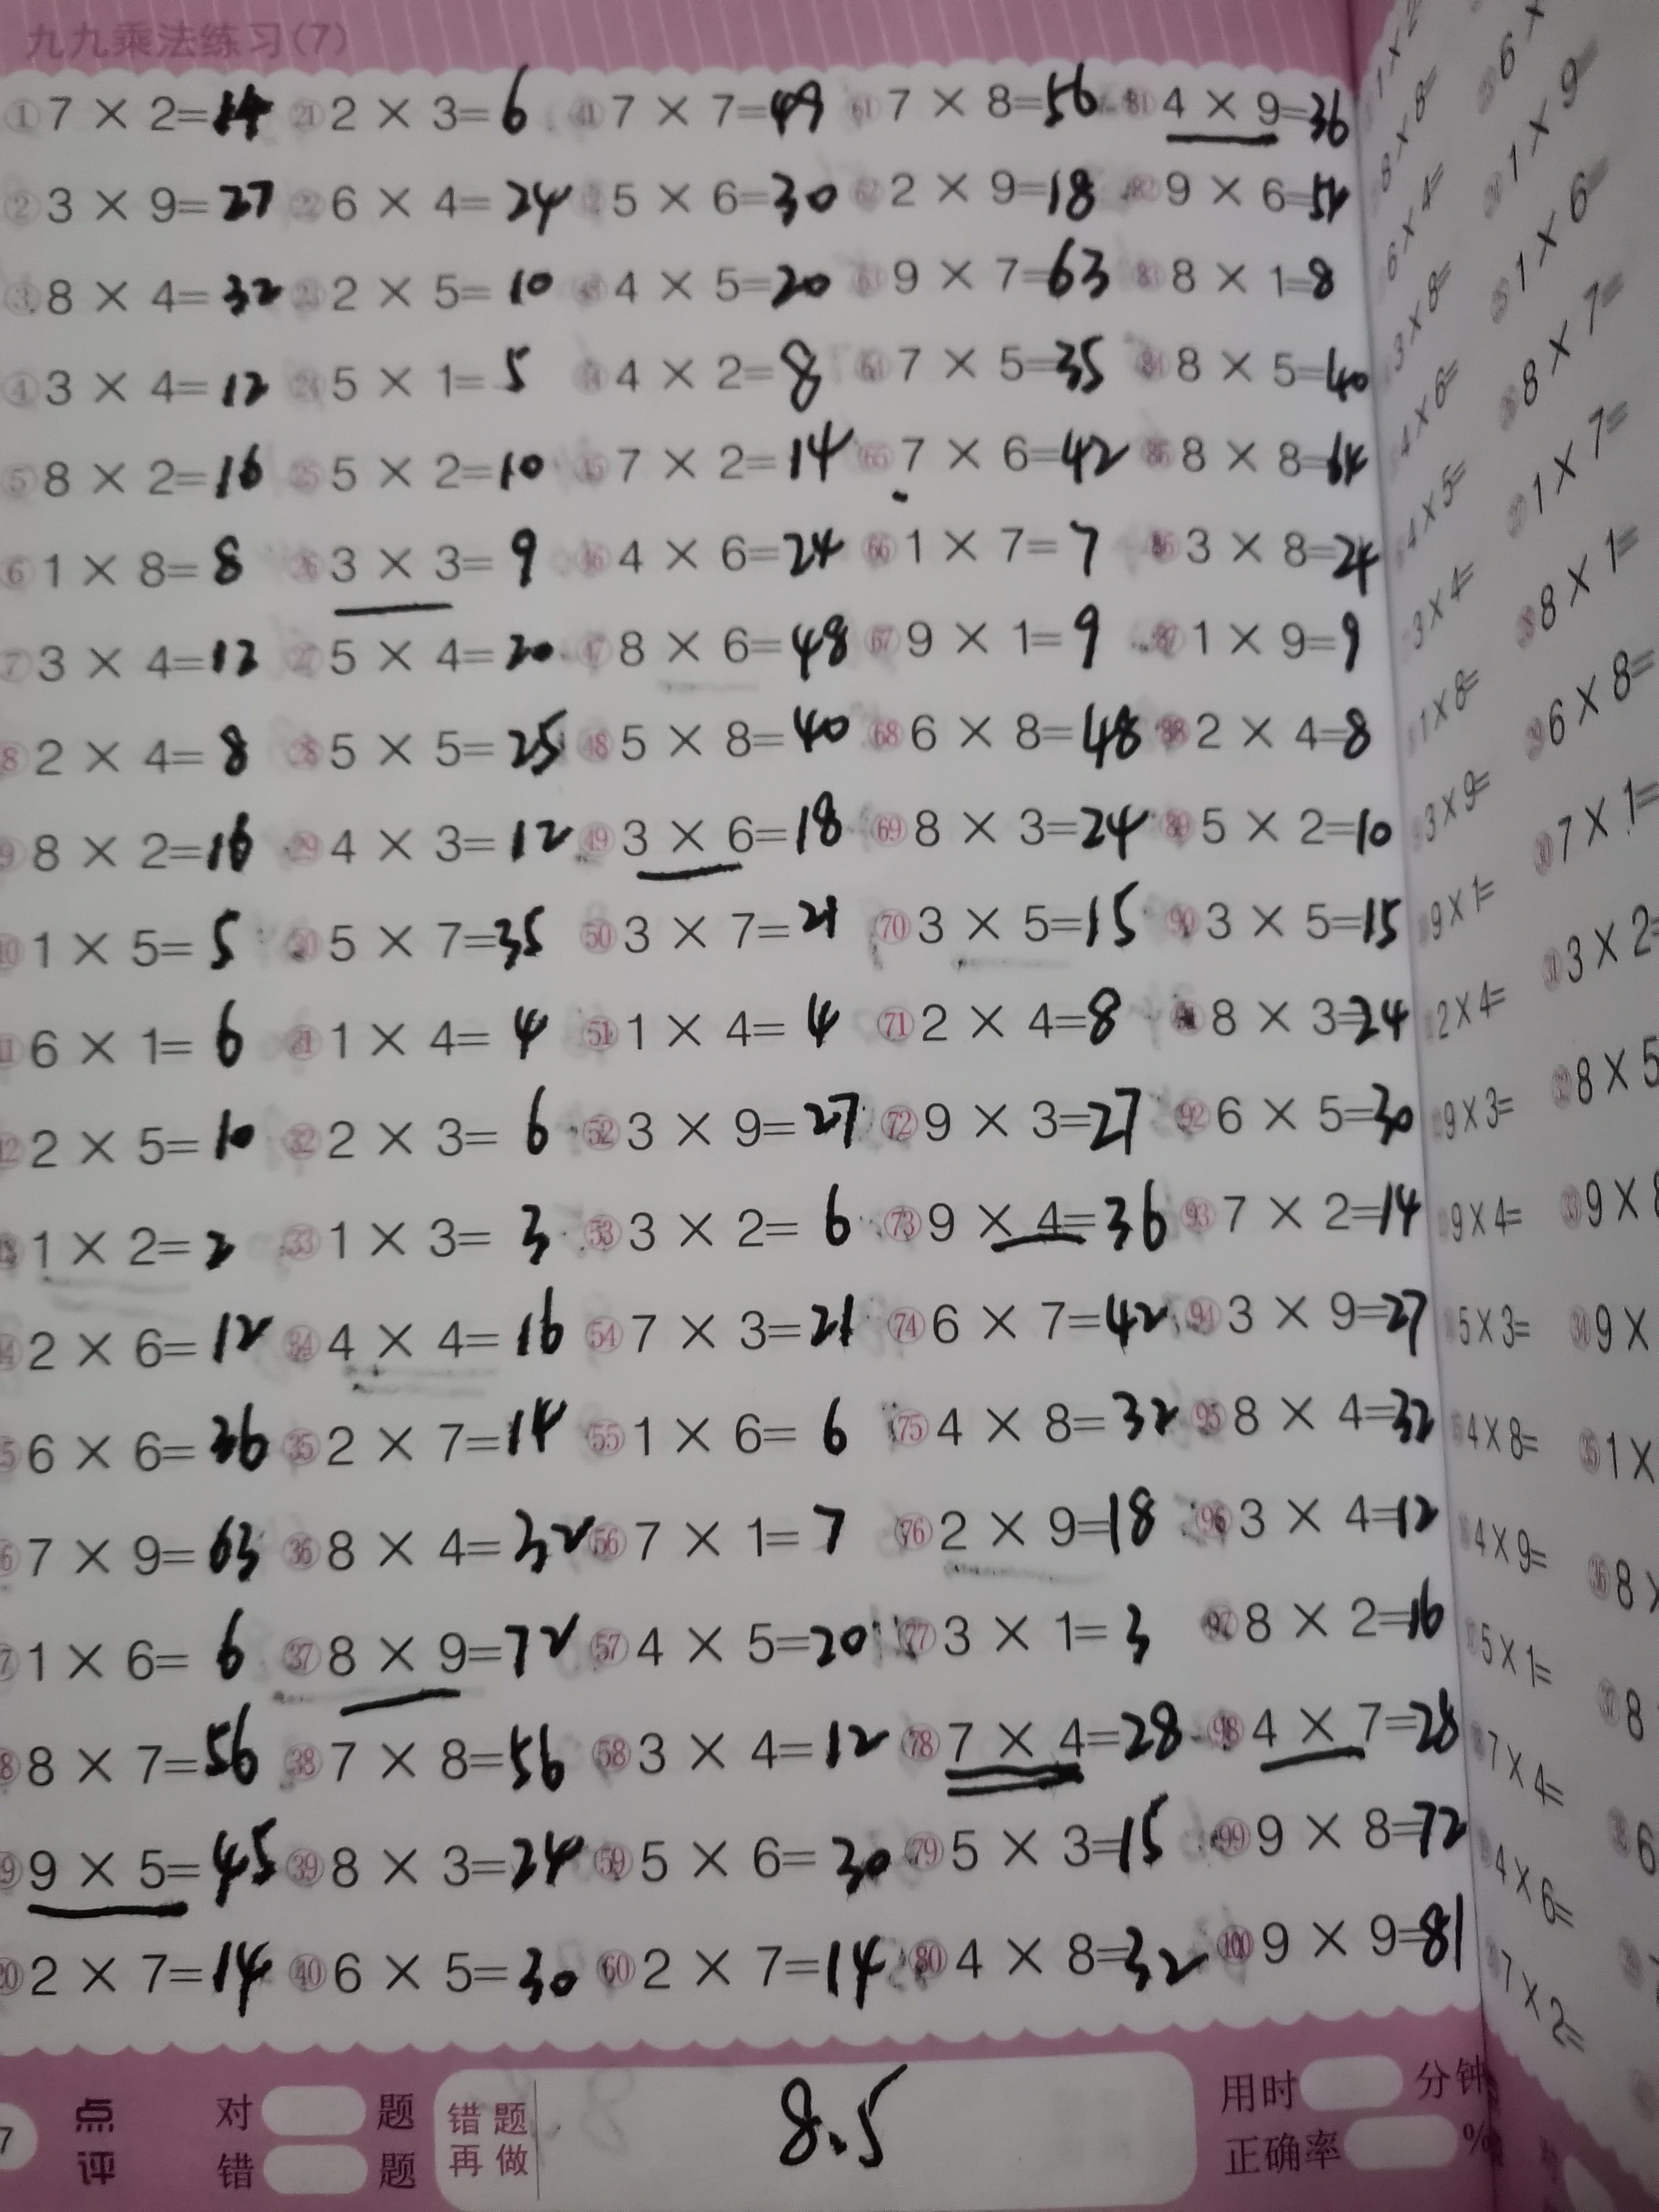 九九乘法练习(7)
①7 × 2=14 ㉑2 × 3=6 ㊶7 × 7=49 61 7 × 8=56 81 4 × 9=36
②3 × 9=27 ㉒6 × 4=24 ㊷5 × 6=30 62 2 × 9=18 82 9 × 6=54
③8 × 4=32 ㉓2 × 5=10 ㊸4 × 5=20 63 9 × 7=63 83 8 × 1=8
④3 × 4=12 ㉔5 × 1=5 ㊹4 × 2=8 64 7 × 5=35 84 8 × 5=40
⑤8 × 2=16 ㉕5 × 2=10 ㊺7 × 2=14 65 7 × 6=42 85 8 × 8=64
⑥1 × 8=8 ㉖3 × 3=9 ㊻4 × 6=24 66 1 × 7=7 86 3 × 8=24
⑦3 × 4=12 ㉗5 × 4=20 ㊼8 × 6=48 67 9 × 1=9 87 1 × 9=9
⑧2 × 4=8 ㉘5 × 5=25 ㊽5 × 8=40 68 6 × 8=48 88 2 × 4=8
⑨8 × 2=16 ㉙4 × 3=12 ㊾3 × 6=18 69 8 × 3=24 89 5 × 2=10
⑩1 × 5=5 ㉚5 × 7=35 ㊿3 × 7=21 70 3 × 5=15 90 3 × 5=15
⑪6 × 1=6 ㉛1 × 4=4 51 1 × 4=4 71 2 × 4=8 8 × 3=24
⑫2 × 5=10 ㉜2 × 3=6 52 3 × 9=27 72 9 × 3=27 92 6 × 5=30
⑬1 × 2=2 ㉝1 × 3=3 53 3 × 2=6 73 9 × 4=36 93 7 × 2=14
⑭2 × 6=12 ㉞4 × 4=16 54 7 × 3=21 74 6 × 7=42 94 3 × 9=27
⑮6 × 6=36 ㉟2 × 7=14 55 1 × 6=6 75 4 × 8=32 95 8 × 4=32
⑯7 × 9=63 ㊱8 × 4=32 56 7 × 1=7 76 2 × 9=18 96 3 × 4=12
⑰1 × 6=6 ㊲8 × 9=72 57 4 × 5=20 77 3 × 1=3 97 8 × 2=16
⑱8 × 7=56 ㊳7 × 8=56 58 3 × 4=12 78 7 × 4=28 98 4 × 7=28
⑲9 × 5=45 ㊴8 × 3=24 59 5 × 6=30 79 5 × 3=15 99 9 × 8=72
⑳2 × 7=14 ㊵6 × 5=30 60 2 × 7=14 80 4 × 8=32 100 9 × 9=81
7 点评
对 题
错 题
错题再做
8.5
用时 分钟
正确率 %
1×2
6×8=
6×4=
3×8=
4×6=
4×5=
3×4=
1×8=
3×9=
9×1=
2×4=
9×3=
9×4=
5×3=
4×8=
4×9=
5×1=
7×4=
4×6=
7×2=
6×
1×9=
1×6=
8×7=
1×7=
8×1=
6×8=
7×1=
3×2=
8×5
9×8
9×
1×
8×
8
6